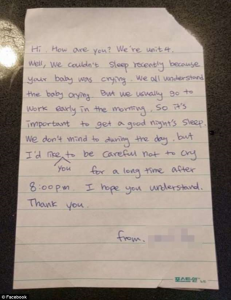 Hi. How are you? We're unit 4.
Well, We couldn't sleep recently because
your baby was crying. We all understand
the baby crying. But we usually go to
work early in the morning. So it's
important to get a good night's sleep.
We don't mind to during the day. but
I'd like to be careful not to cry
you for a long time after
8:00pm I hope you understand.
Thank you.
from.
© Facebook